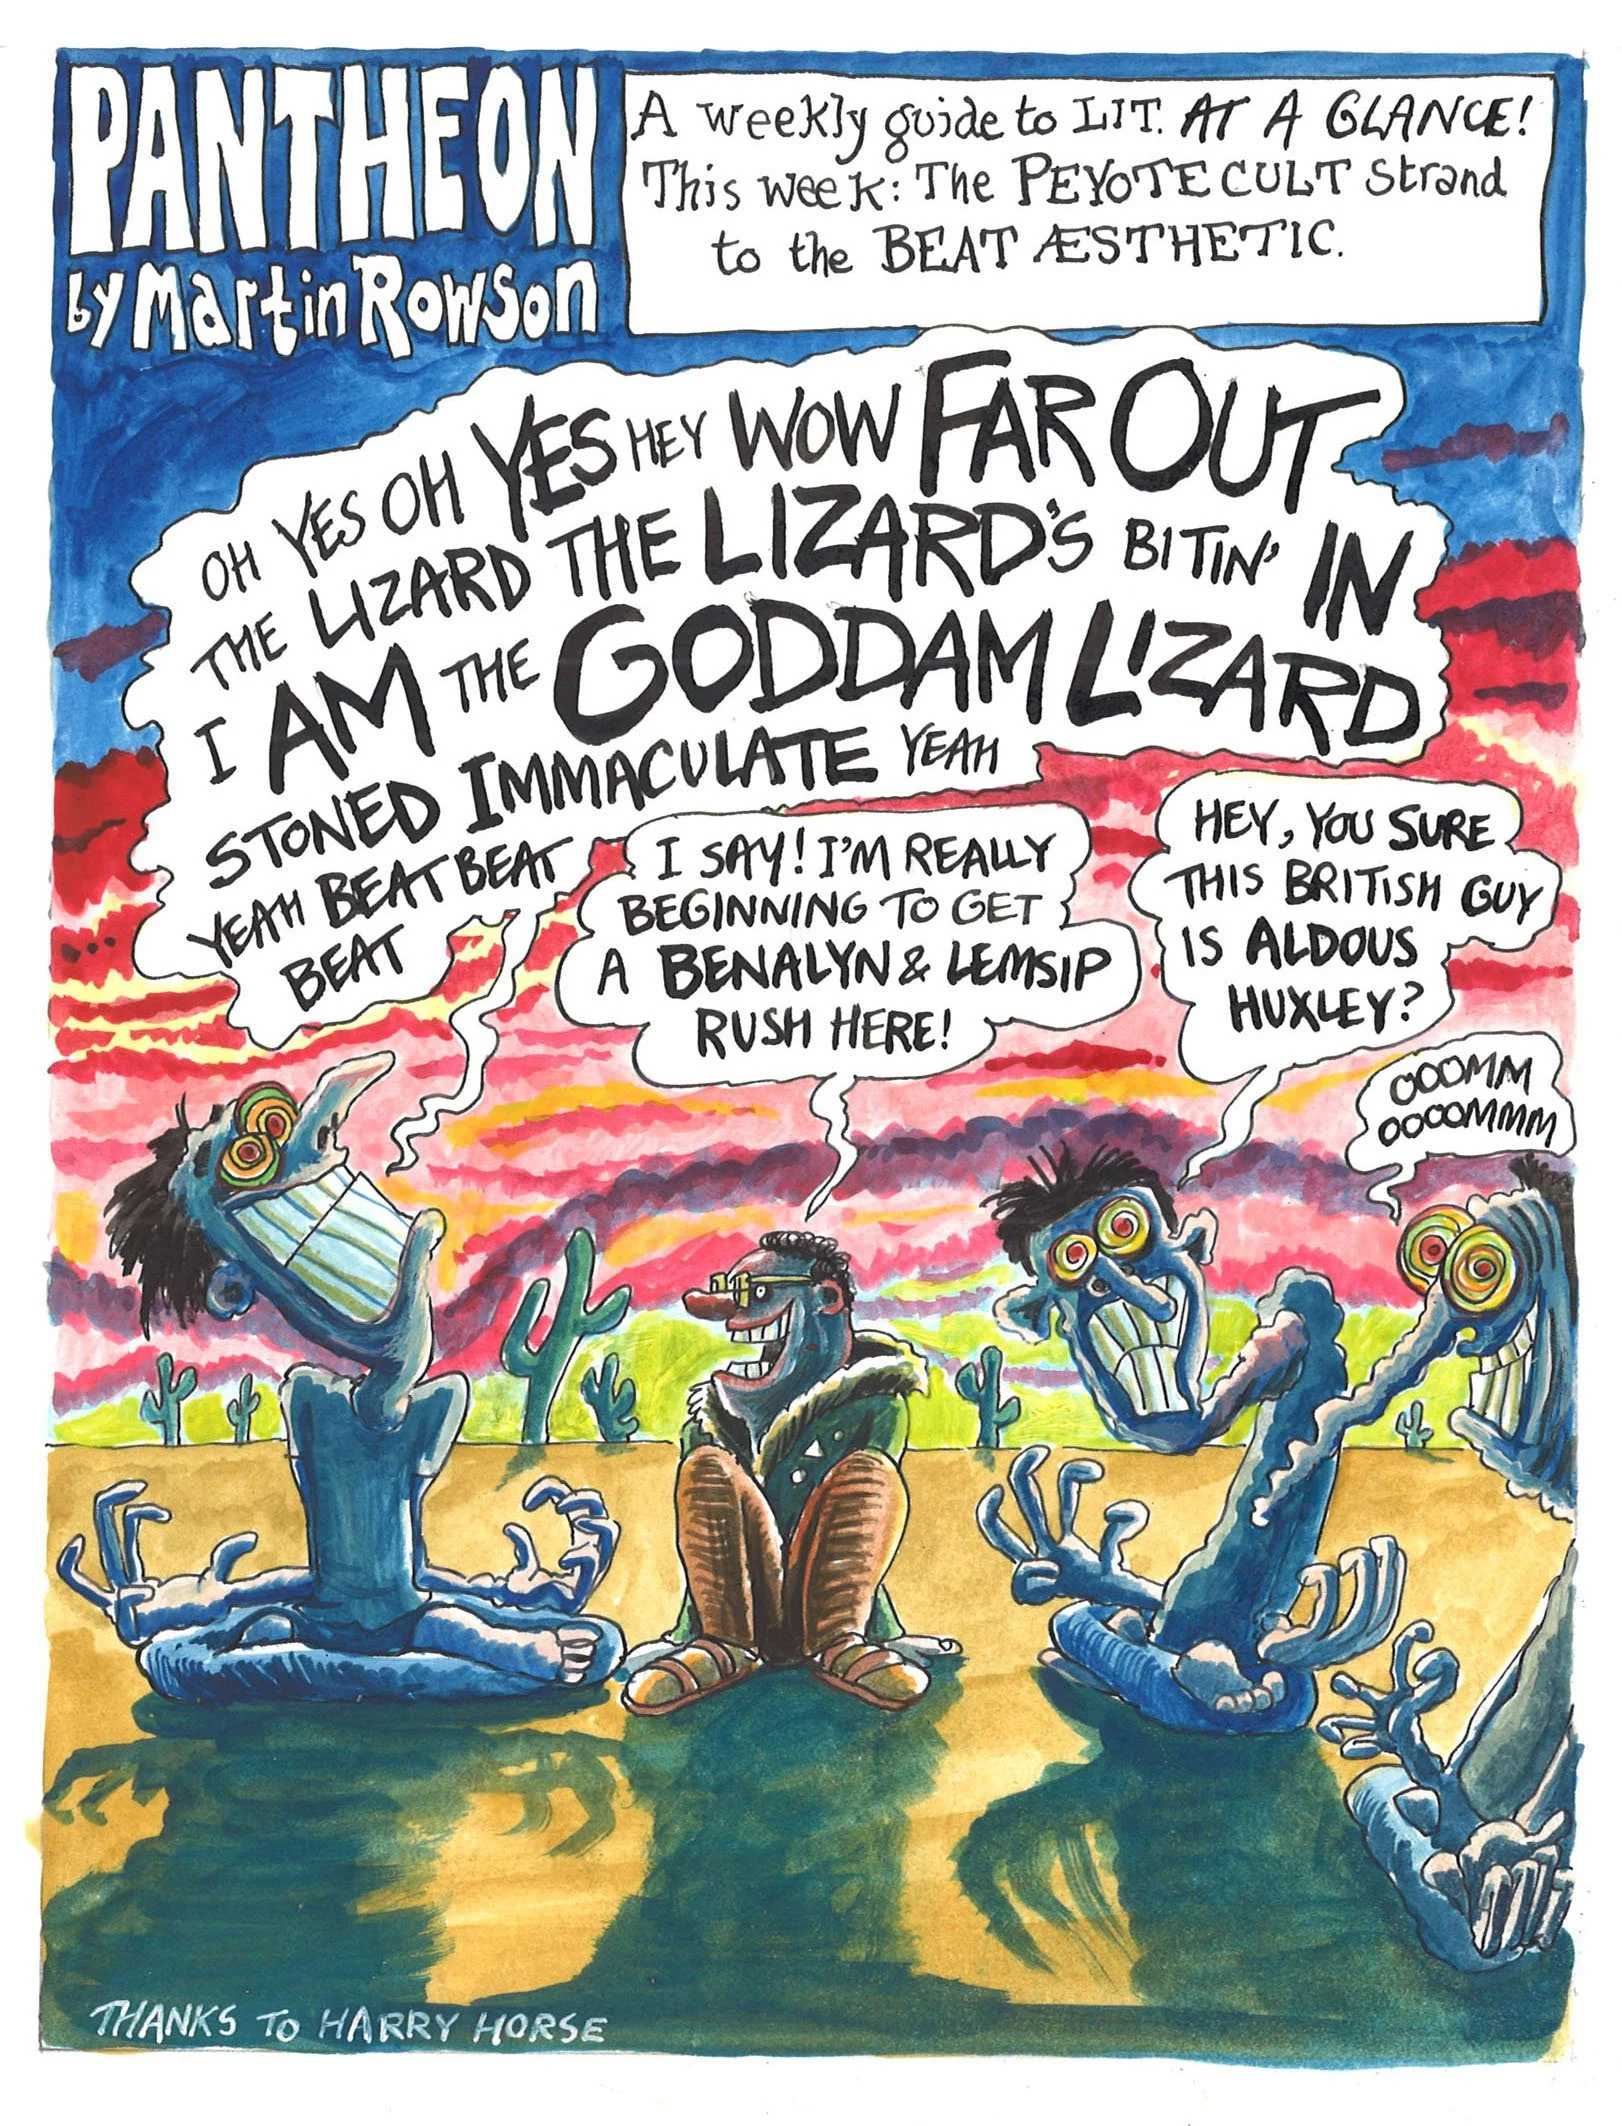 PANTHEON
by Martin Rowson
A weekly guide to LIT. AT A GLANCE!
This week: The PEYOTE CULT strand
to the BEAT ÆSTHETIC.
OH YES OH YES HEY WOW FAR OUT
THE LIZARD THE LIZARD'S BITIN' IN
I AM THE GODDAM LIZARD
STONED IMMACULATE YEAH
YEAH BEAT BEAT BEAT
BEAT
I SAY! I'M REALLY
BEGINNING TO GET
A BENALYN & LEMSIP
RUSH HERE!
HEY, YOU SURE
THIS BRITISH GUY
IS ALDOUS
HUXLEY?
OOOMM
OOOOMMM
THANKS TO HARRY HORSE